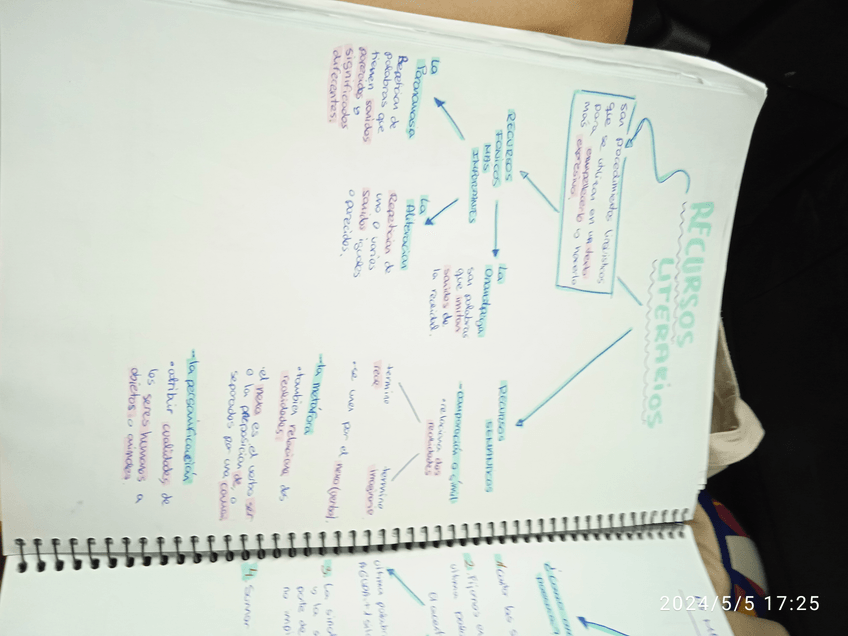 RECURSOS
LITERARIOS
son procedimientos lingüísticos
que se utilizan en un texto
para embellecerlo o hacerlo
más expresivo.
RECURSOS
FONICOS
MÁS
IMPORTANTES
La
Paronomasia
Repetición de
palabras que
tienen sonidos
parecidos y
significados
diferentes.
La
Aliteración
Repetición de
uno o varios
sonidos iguales
o parecidos.
La
Onomatopeya
son palabras
que imitan
sonidos de
la realidad.
RECURSOS
SEMÁNTICOS
-comparación o símil
•relaciona dos
realidades
termino
real
termino
imaginario
•se unen por el nexo (verbo).
-La metáfora
•tambien relaciona dos
realidades
•el nexo es el verbo ser
o la preposición de, o
separados por una coma
-La personificación
•atribuir cualidades de
los seres humanos a
objetos o animales
1.
2. Fijarnos en
última
última
3. La
y la
4. Sumar
2024/5/5 17:25